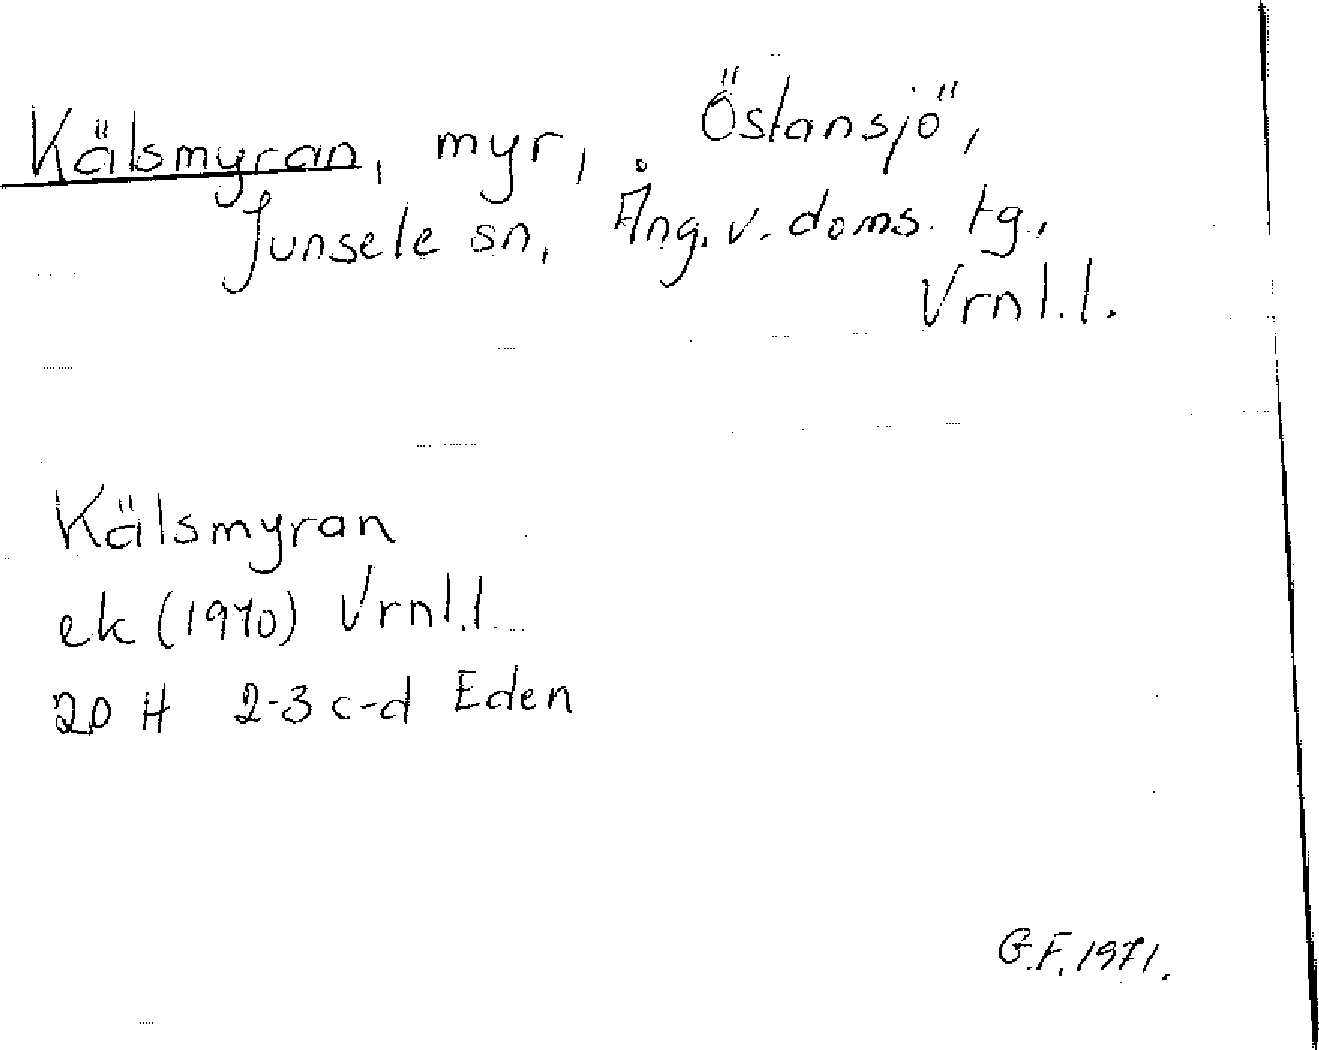 Kälsmyran, myr, Östansjö,
Junsele sn, Ång. v. doms. tg,
Vrnl.l.
Kälsmyran
ek (1970) Vrnl.l
20 H 2-3 c-d Eden
G.F. 1971.